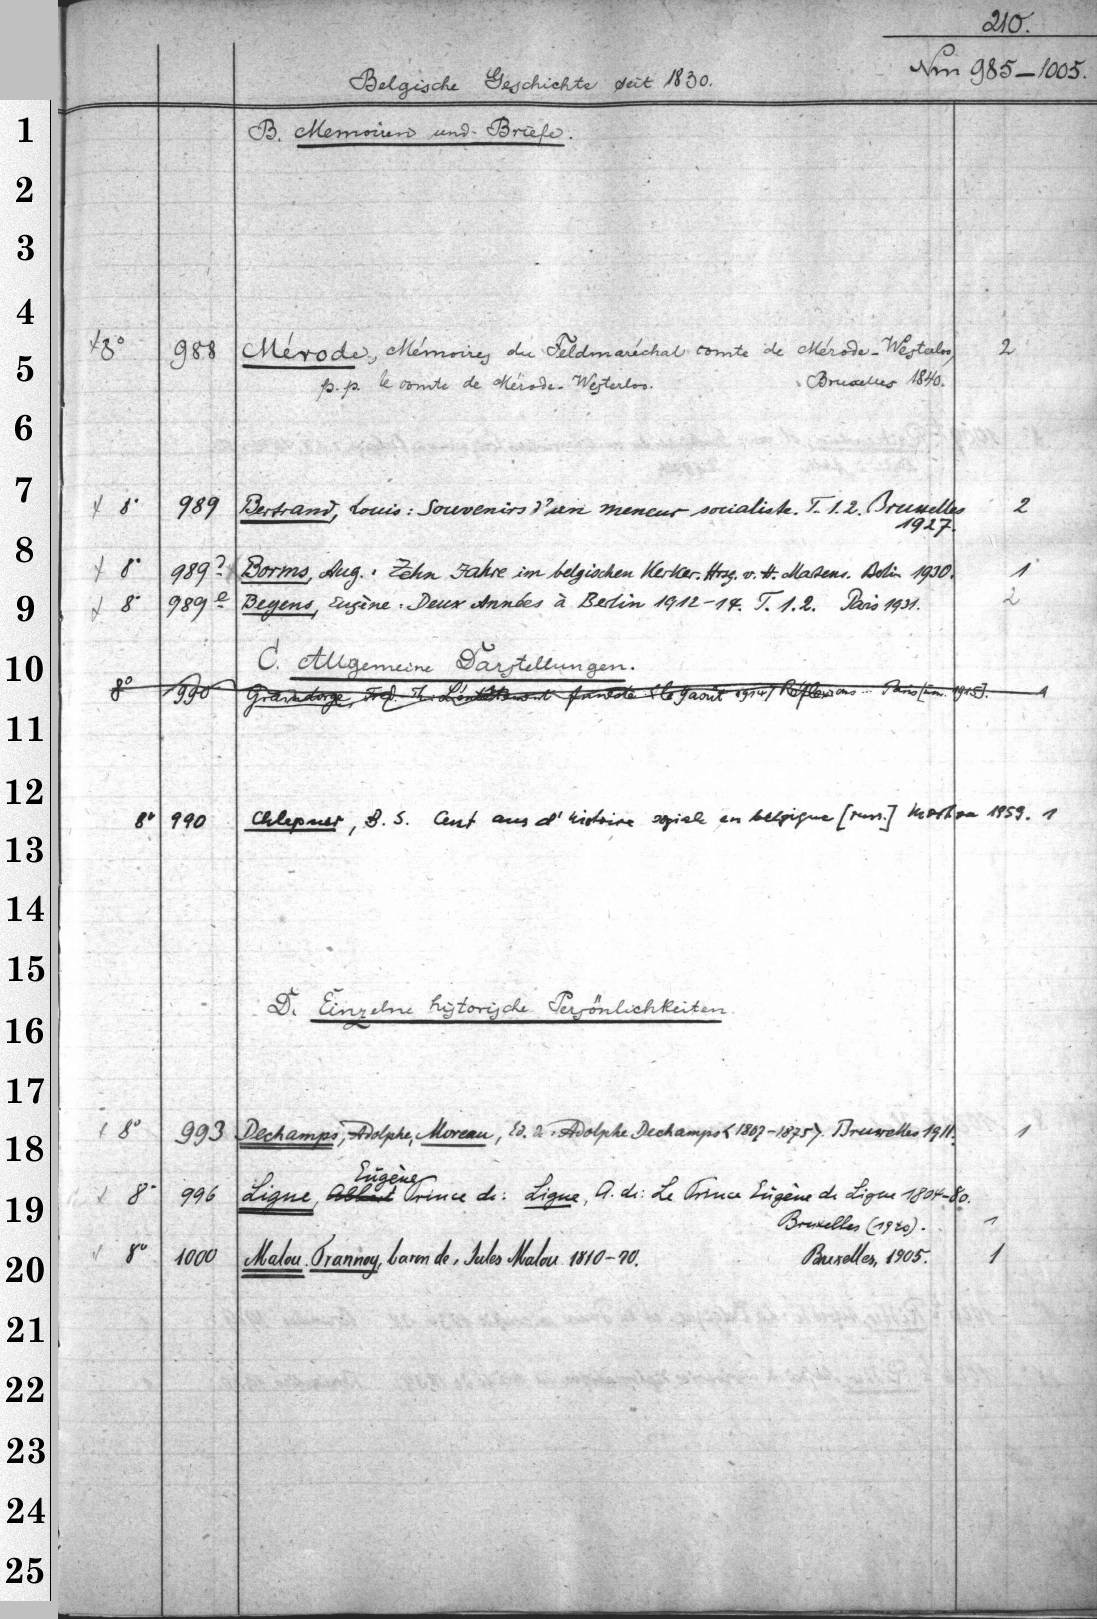 210.
Nrn 985-1005.
Belgische Geschichte seit 1830.
1
B. Memoiren und Briefe.
2
3
4
8° 988 Mérode, Mémoires du Feldmaréchal comte de Mérode-Westerloo, 2
5
p.p. le comte de Mérode-Westerloo. Bruxelles 1840.
6
7
8° 989 Bertrand, Louis: Souvenirs d'un meneur socialiste. T. 1.2. Bruxelles 2
1927.
8
8° 989 Borms, Aug.: Zehn Jahre im belgischen Kerker. Hrsg. v. H. Berlin 1930. 1
9
8° 989e Beyens, Eugène: Deux Années à Berlin 1912-14. T. 1.2. Paris 1931. 2
10
C. Allgemeine Darstellungen.
8° 990 Graindorge, Fréd. Th. funeste (le 9 août 1914) Réflexions... Paris 1
11
12
8° 990 Chlepner, B. S. Cent ans d'histoire sociale en belgique [russ.] Moskva 1959. 1
13
14
15
D. Einzelne historische Persönlichkeiten.
16
17
8° 993 Dechamps, Adolphe, Moreau, Ed. de: Adolphe Dechamps <1807-1875>. Bruxelles 1911. 1
18
Eugène
8° 996 Ligne, Albert Prince de: Ligne, A. de: Le Prince Eugène de Ligne 1804-80.
19
Bruxelles (1940). 1
8° 1000 Malou. Trannoy, baron de, Jules Malou 1810-70. Bruxelles, 1905. 1
20
21
22
23
24
25